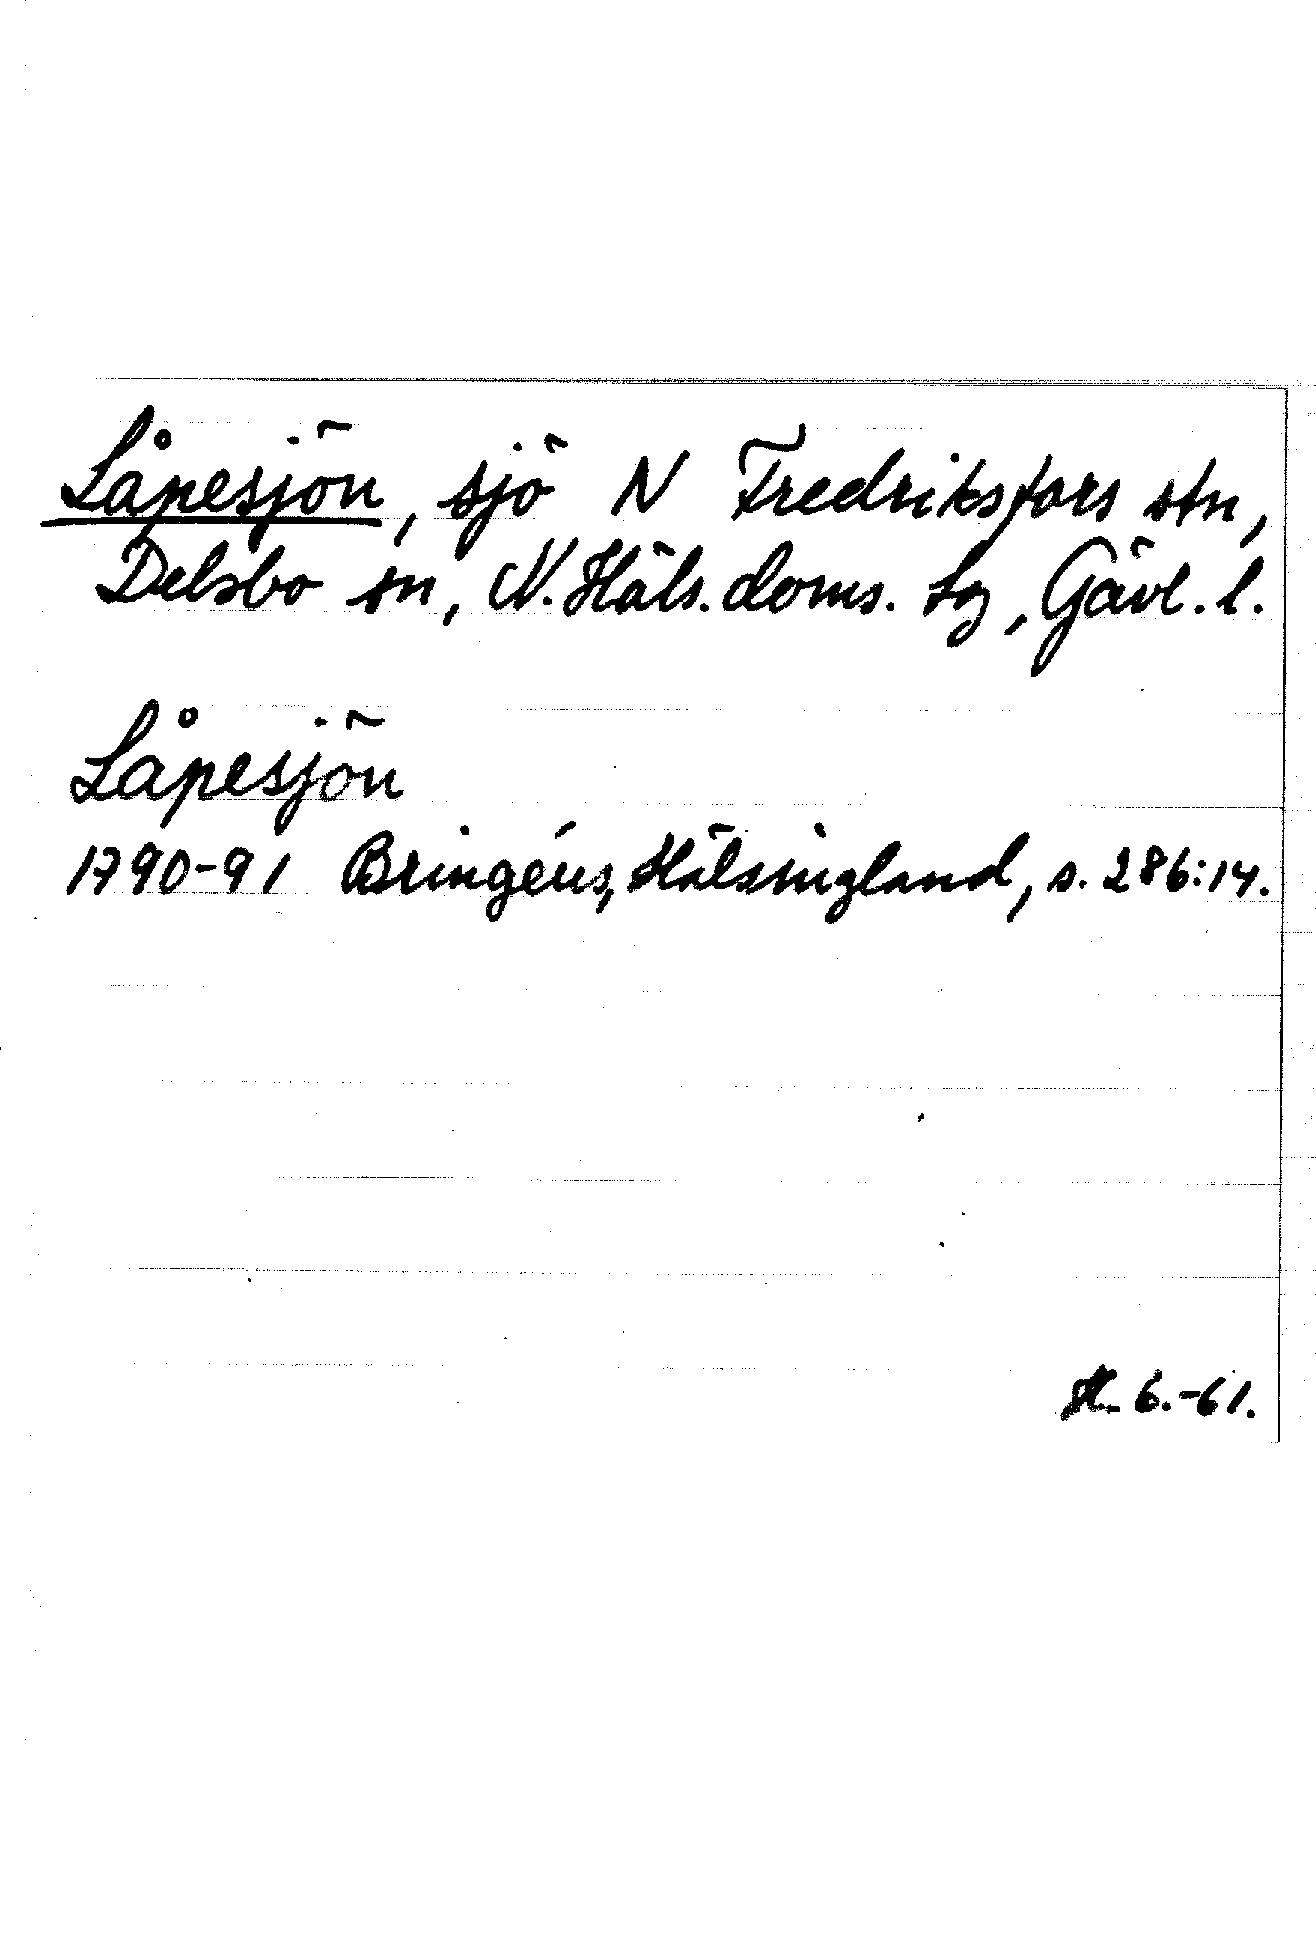 Låpesjön, sjö N Fredriksfors stn,
Delsbo sn, N. Häls. doms. tg, Gävl. l.
Låpesjön
1790-91 Bringéus, Hälsingland, s. 286:14.
6.-61.